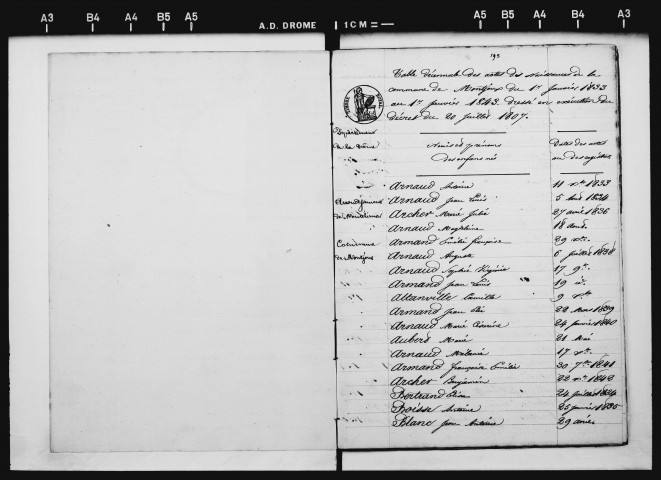 A3 B4 A4 B5 A5 A.D. DROME 1 CM A5 B5 A4 B4 A3
193
Table décennale des actes des naissances de la
commune de Montjoux du 1er janvier 1833
au 1er janvier 1843. dressé en exécution du
décret du 20 juillet 1807.
Département
de la Drôme
Noms et prénoms
des enfans nés
Dates des actes
ou des registres
Arnaud Antoine 11 xbre 1833
Arrondissement Arnaud Jean Louis 5 1834
de Montélimar Archer Marie Julie 27 avril 1836
Arnaud Magdeleine 18
Commune Armand Emilie françoise 29 xbre
de Montjoux Arnaud Auguste 6 juillet 1838
Arnaud Sophie Virginie 17 9bre
Armand Jean Louis 19 id.
Attanville Camille 9 xbre
Armand Jean 22 Mars 1839
Arnaud Marie 24 janvier 1840
Aubert Marie 21 Mai
Arnaud Mélanie 17 xbre
Armand françoise Emilie 30 7bre 1841
Archer Benjamin 22 xbre 1842
Bertrand 24 juillet 1834
Boisse Antoine 25 janvier 1835
Blanc Jean Antoine 29